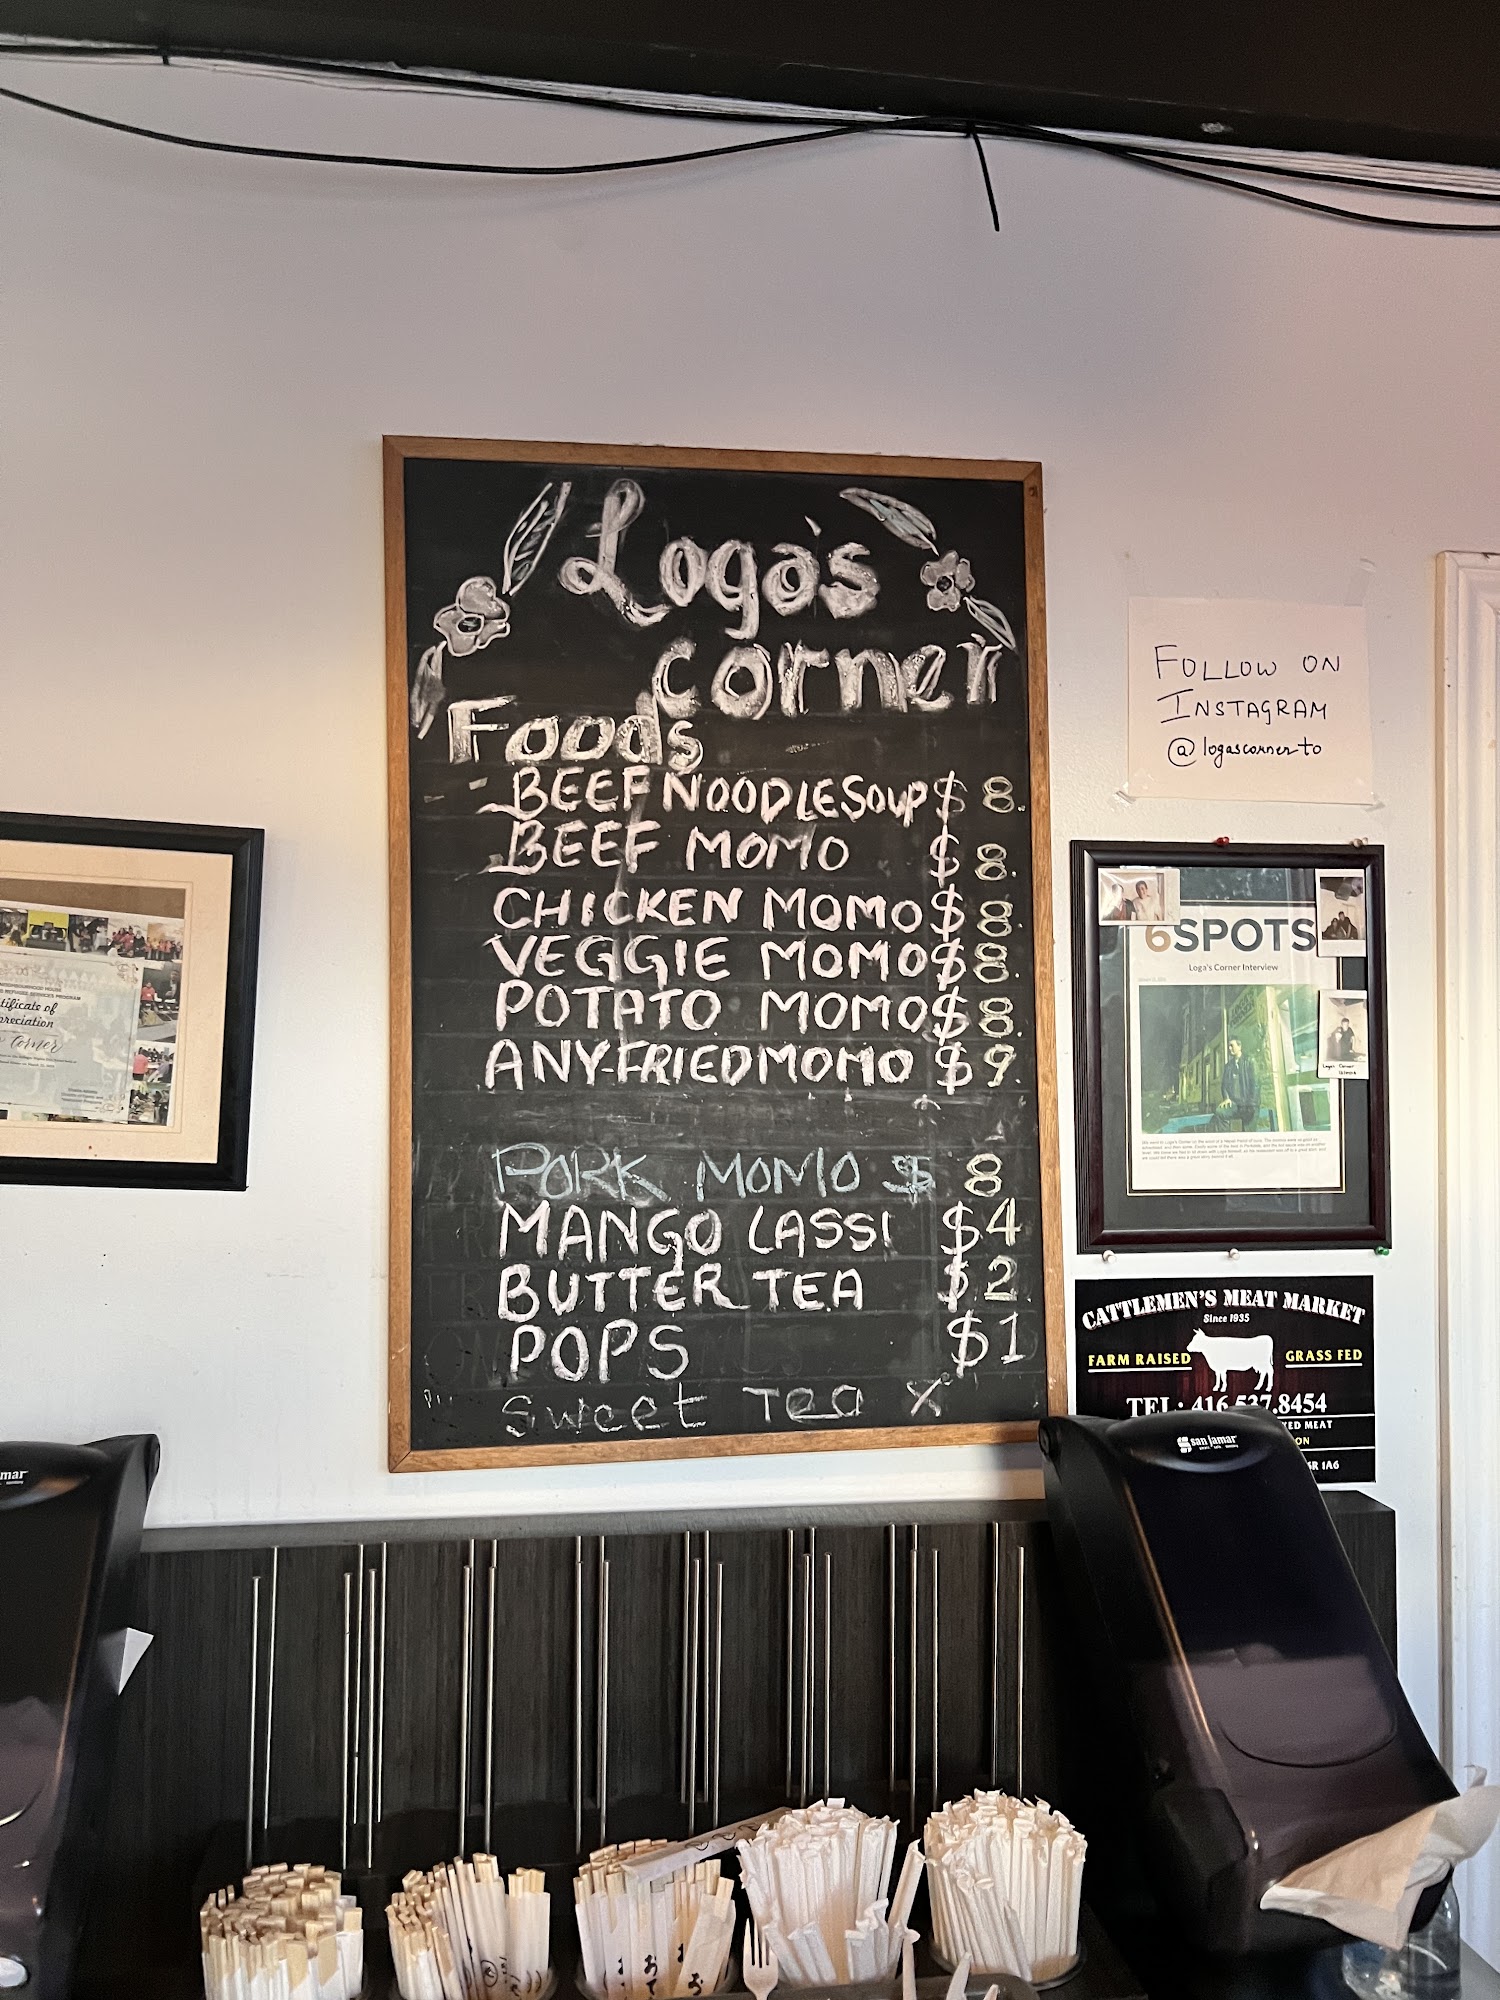 Loga's
corner
Foods
BEEF NOODLE SOUP $ 8.
BEEF MOMO $ 8.
CHICKEN MOMO $ 8.
VEGGIE MOMO $ 8.
POTATO MOMO $ 8.
ANY-FRIED MOMO $ 9.
PORK MOMO $ 8
MANGO LASSI $ 4
BUTTER TEA $ 2
POPS $ 1
Sweet Tea X
FOLLOW ON
INSTAGRAM
@logascornerto
6SPOTS
Loga's Corner Interview
CATTLEMEN'S MEAT MARKET
Since 1935
FARM RAISED GRASS FED
TEL: 416.537.8454
KED MEAT
ON
6R 1A6
san jamar
mar
tificate of
reciation
Corner